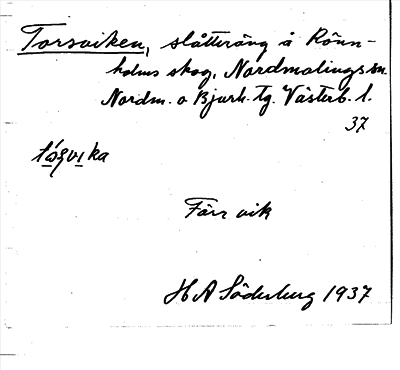 Torsviken, slåtteräng å Rönn-
holms skog, Nordmalings sn.
Nordm. o Bjurh. tg. Västerb. l.
37
tó̱ṣvi̱ka
Färs vik
H A Söderberg 1937